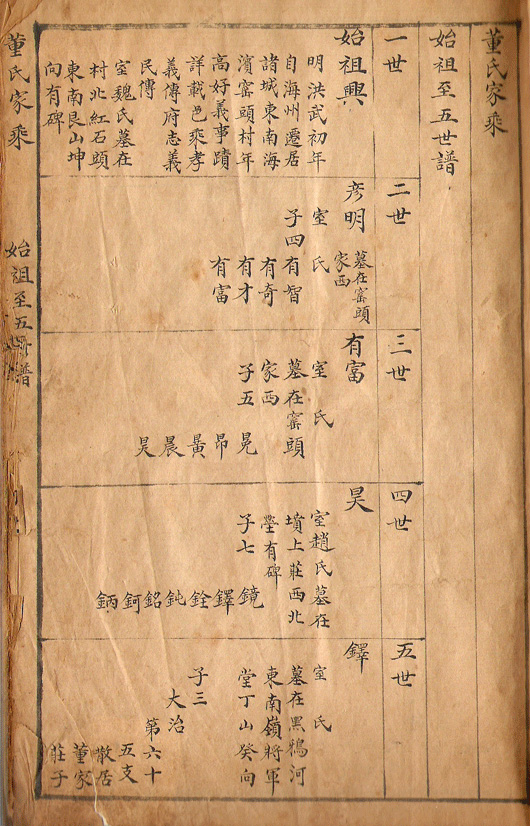 董氏家乘
始祖至五世譜
一世
始祖興
明洪武初年
自海州遷居
諸城東南海
濱窰頭村年
高好義事蹟
詳載邑乘孝
義傳府志義
民傳
室魏氏墓在
村北紅石頭
東南艮山坤
向有碑
二世
彥明
墓在窰頭
家西
室 氏
子四 有智
有奇
有才
有富
三世
有富
室 氏
墓在窰頭
家西
子五 晃
昂
晨
昊
四世
昊
室趙氏墓在
墳上莊西北
塋有碑
子七 鏡
鐸
銓
鈍
銘
鈳
鈵
五世
鐸
室 氏
墓在黑鴉河
東南嶺將軍
堂丁山癸向
子三
大治
第六十
五支
散居
董家
莊子
董氏家乘
始祖至五世譜